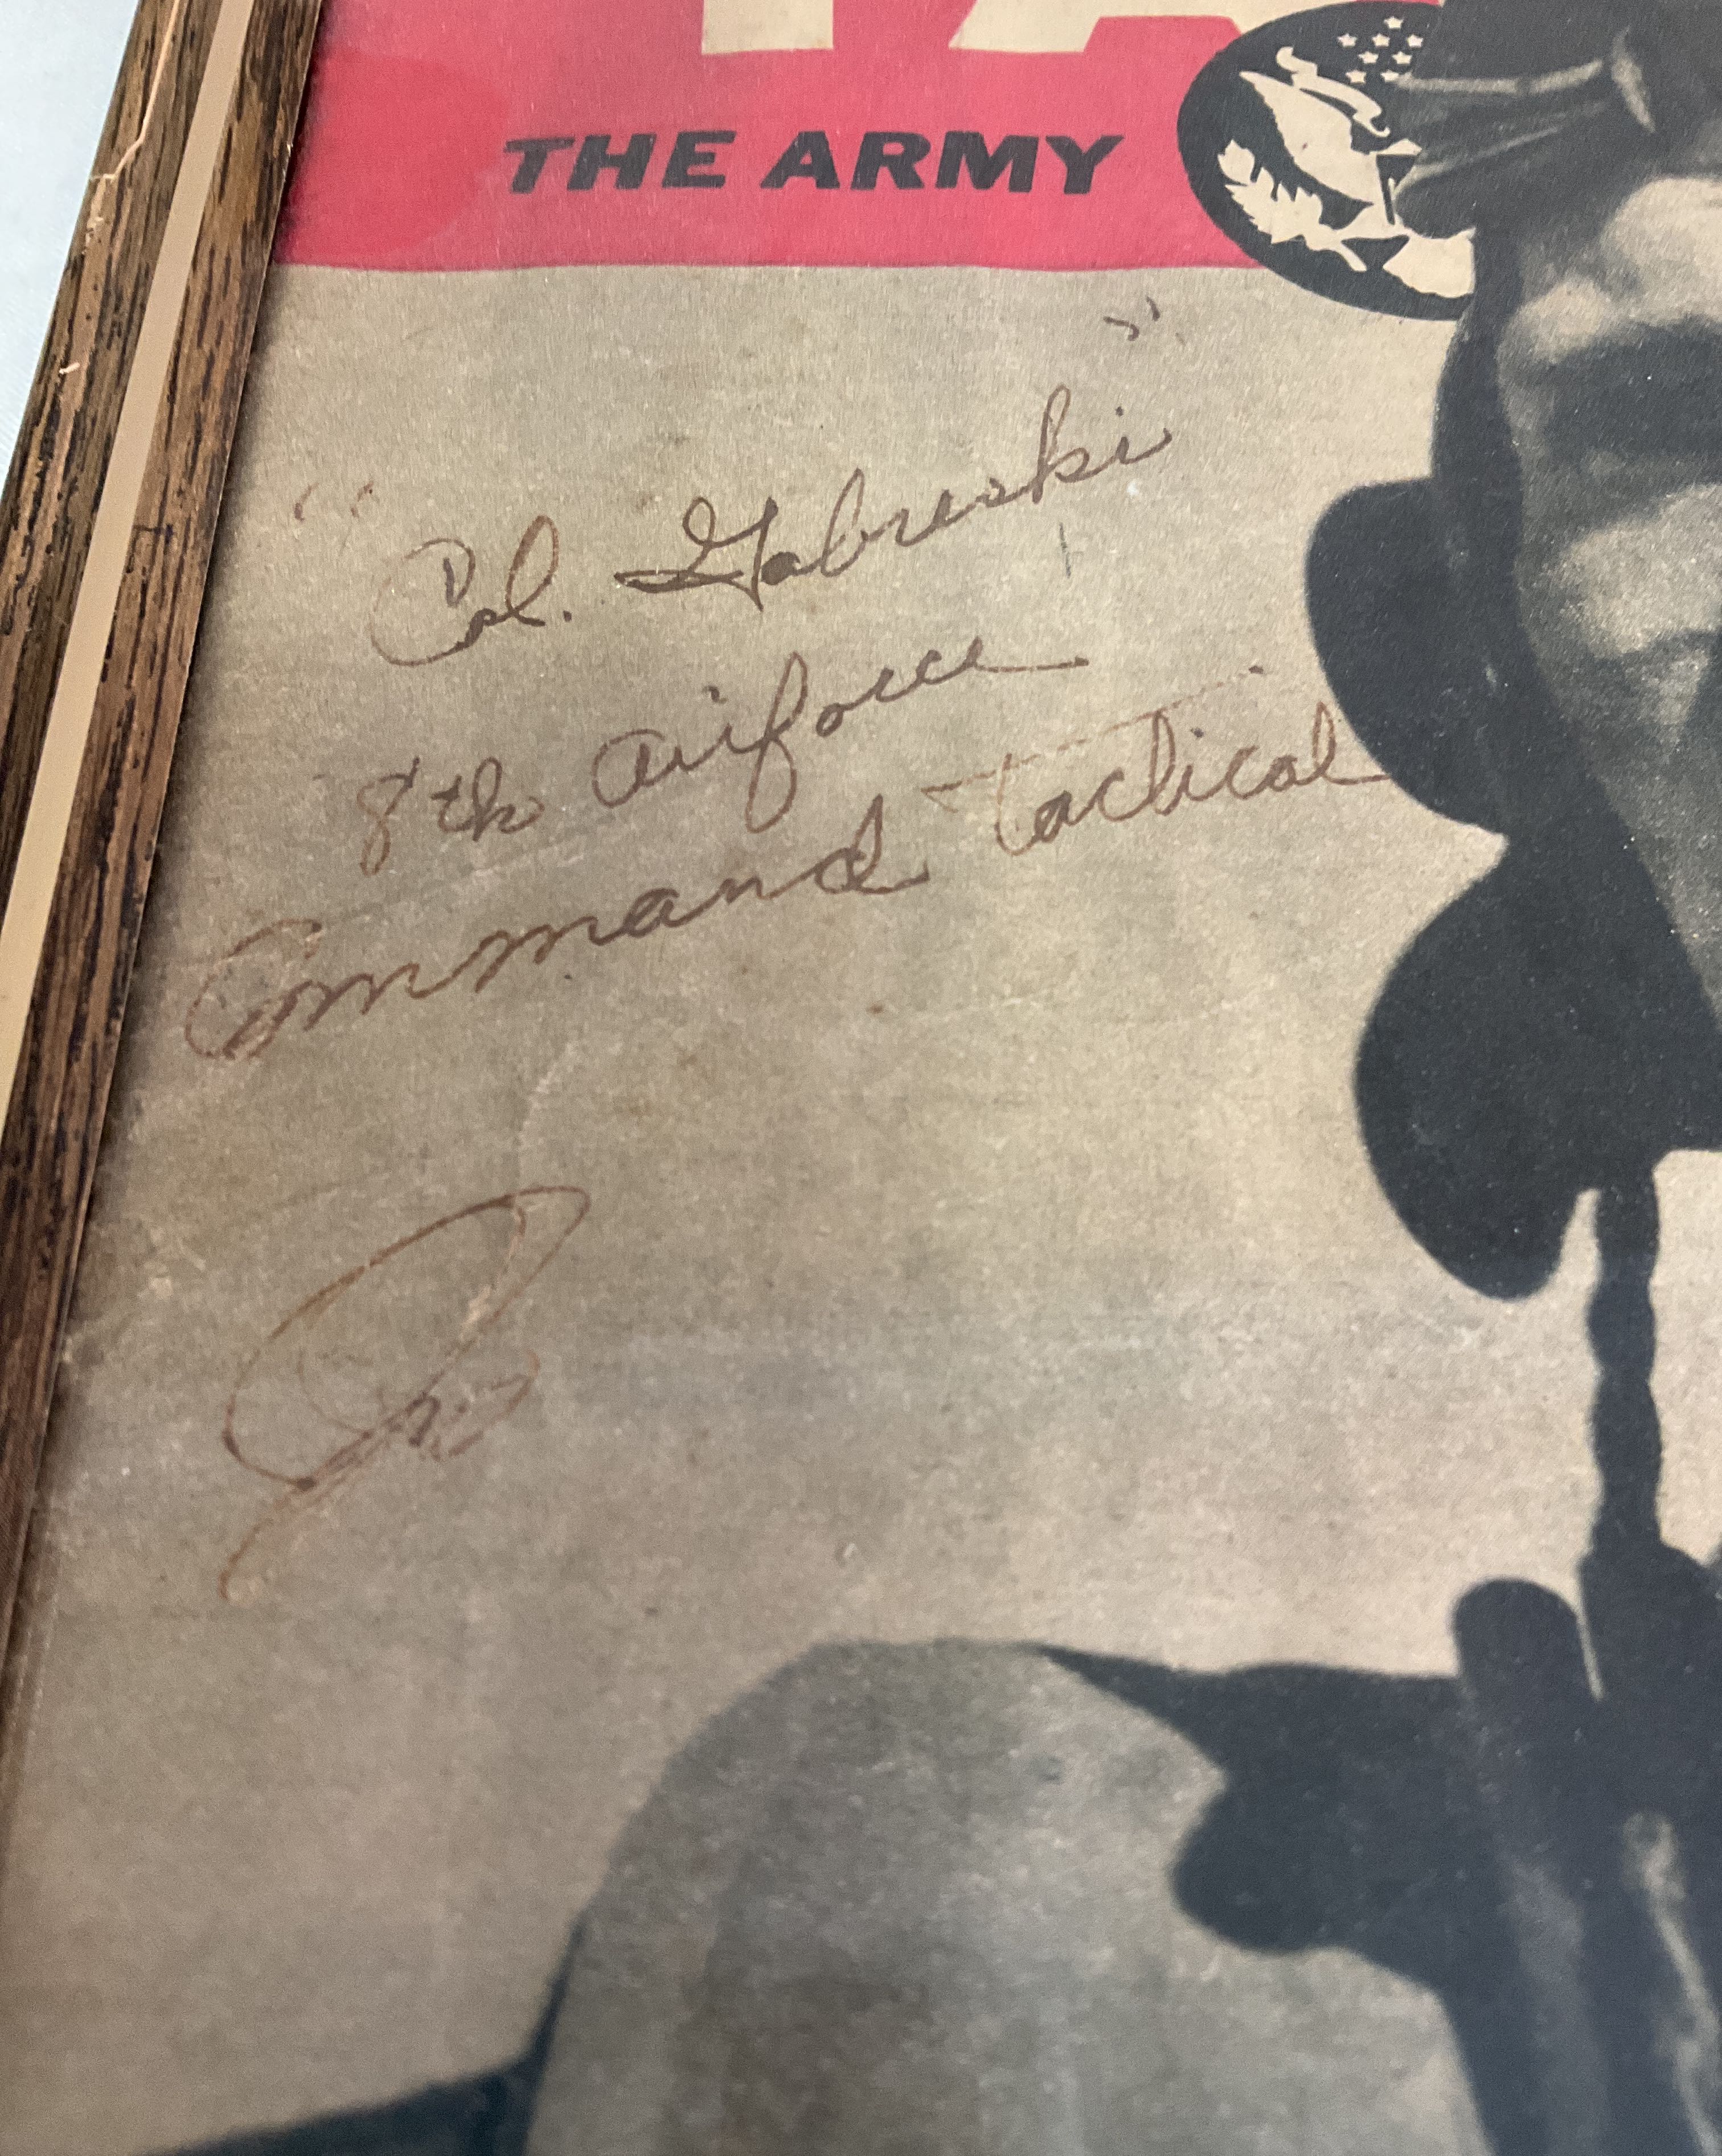 THE ARMY
" Col. Gabreski "
8th airforce
Command tactical